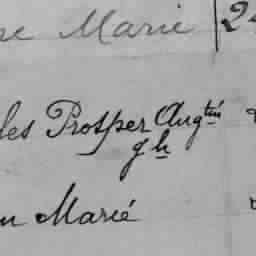 se Marie 24
les Prosper Aug^tin
gh
n Marié